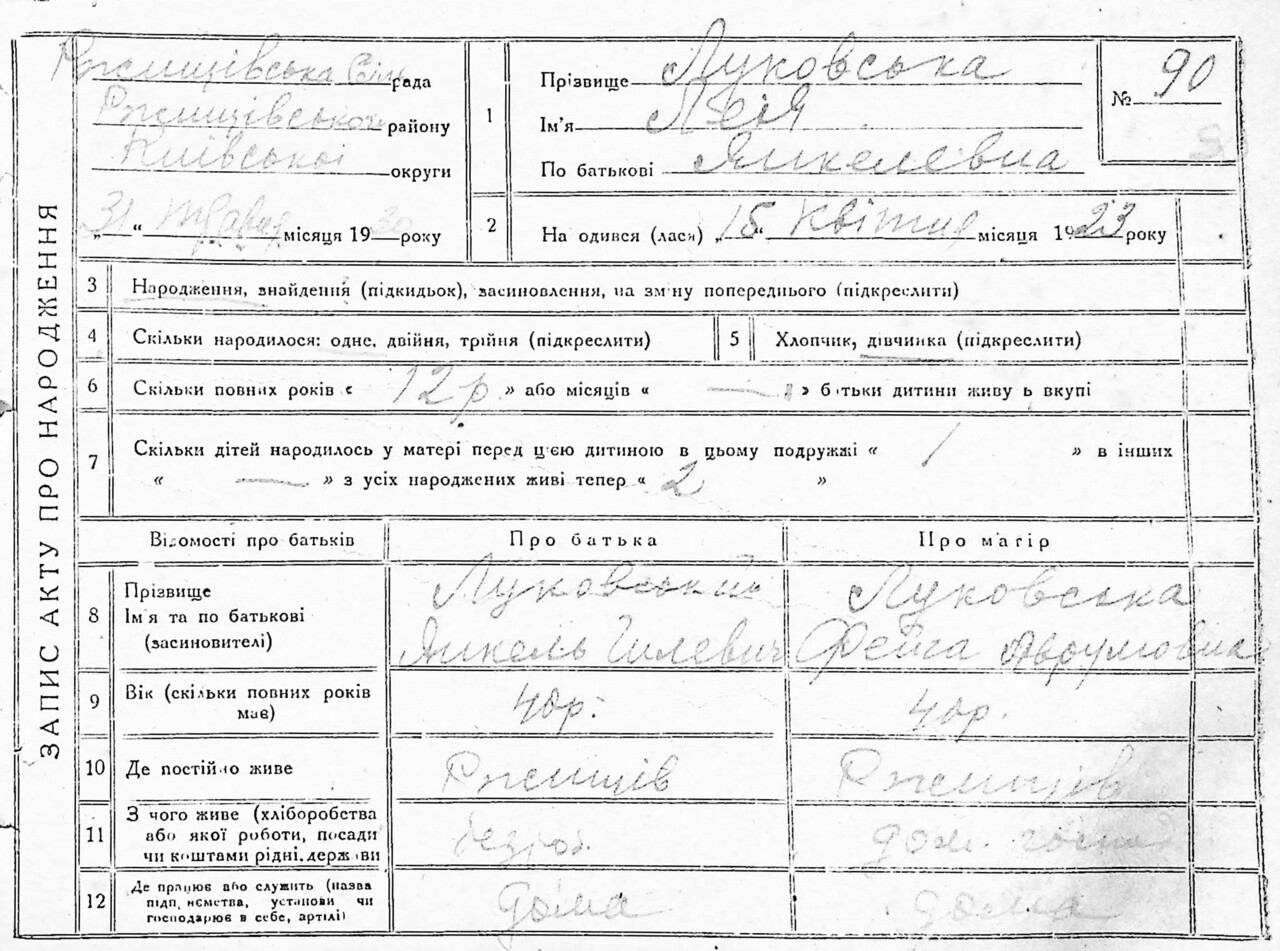 ЗАПИС АКТУ ПРО НАРОДЖЕННЯ
Ржищівська Сіль рада
Ржищівського району
Київської округи
„31“ травня місяця 1930 року
1
Прізвище Луковська
Ім’я Лея
По батькові Янкелевна
№ 90
2
На одився (лася) „15“ квітня місяця 1923 року
3 Народження, знайдення (підкидьок), засиновлення, на зм ну попереднього (підкреслити)
4 Скільки народилося: одне, двійня, трійня (підкреслити)
5 Хлопчик, дівчинка (підкреслити)
6 Скільки повних років « 12 р. » або місяців « — » б тьки дитини живу ь вкупі
7 Скільки дітей народилось у матері перед цією дитиною в цьому подружжі « 1 » в інших
« — » з усіх народжених живі тепер « 2 »
Відомості про батьків Про батька Про матір
8 Прізвище
Ім'я та по батькові
(засиновителі)
Луковський
Янкель Гилевич
Луковська
Фейга Аврумовна
9 Вік (скільки повних років
має)
40 р.
40 р.
10 Де постійно живе Ржищів Ржищів
11 З чого живе (хліборобства
або якої роботи, посади
чи коштами рідні, держ ви
безроб.
дом. госп
12 Де працює або служить (назва
підп. иємства, установи чи
господарює в себе, артілі)
дома
дома